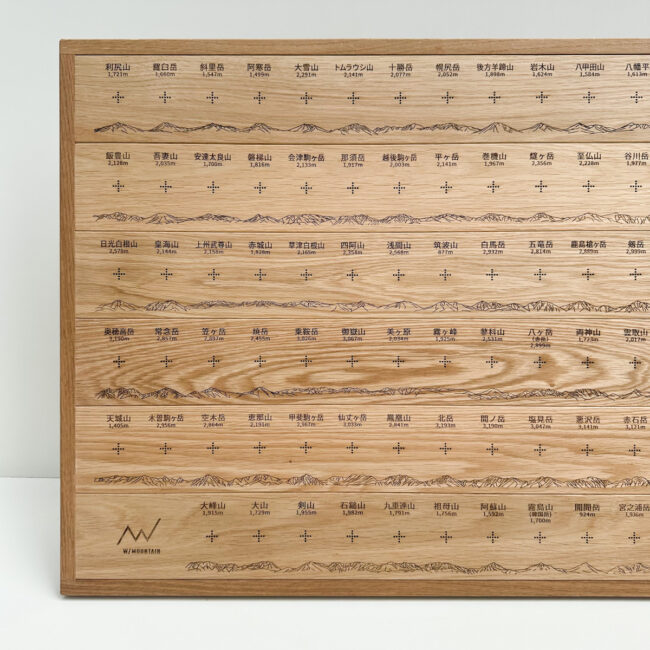 利尻山 羅臼岳 斜里岳 阿寒岳 大雪山 トムラウシ山 十勝岳 幌尻岳 後方羊蹄山 岩木山 八甲田山 八幡平
1,721m 1,660m 1,547m 1,499m 2,291m 2,141m 2,077m 2,052m 1,898m 1,624m 1,584m 1,613m
飯豊山 吾妻山 安達太良山 磐梯山 会津駒ヶ岳 那須岳 越後駒ヶ岳 平ヶ岳 巻機山 燧ヶ岳 至仏山 谷川岳
2,128m 2,035m 1,700m 1,816m 2,133m 1,917m 2,003m 2,141m 1,967m 2,356m 2,228m 1,977m
日光白根山 皇海山 上州武尊山 赤城山 草津白根山 四阿山 浅間山 筑波山 白馬岳 五竜岳 鹿島槍ヶ岳 剱岳
2,578m 2,144m 2,158m 1,828m 2,165m 2,354m 2,568m 877m 2,932m 2,814m 2,889m 2,999m
奥穂高岳 常念岳 笠ヶ岳 焼岳 乗鞍岳 御嶽山 美ヶ原 霧ヶ峰 蓼科山 八ヶ岳 両神山 雲取山
3,190m 2,857m 2,897m 2,455m 3,026m 3,067m 2,034m 1,925m 2,531m (赤岳) 1,723m 2,017m
2,899m
天城山 木曽駒ヶ岳 空木岳 恵那山 甲斐駒ヶ岳 仙丈ヶ岳 鳳凰山 北岳 間ノ岳 塩見岳 悪沢岳 赤石岳
1,405m 2,956m 2,864m 2,191m 2,967m 3,033m 2,841m 3,193m 3,190m 3,047m 3,141m 3,121m
大峰山 大山 剣山 石鎚山 九重連山 祖母山 阿蘇山 霧島山 開聞岳 宮之浦岳
1,915m 1,729m 1,955m 1,982m 1,791m 1,756m 1,592m (韓国岳) 924m 1,936m
1,700m
W/MOUNTAIN